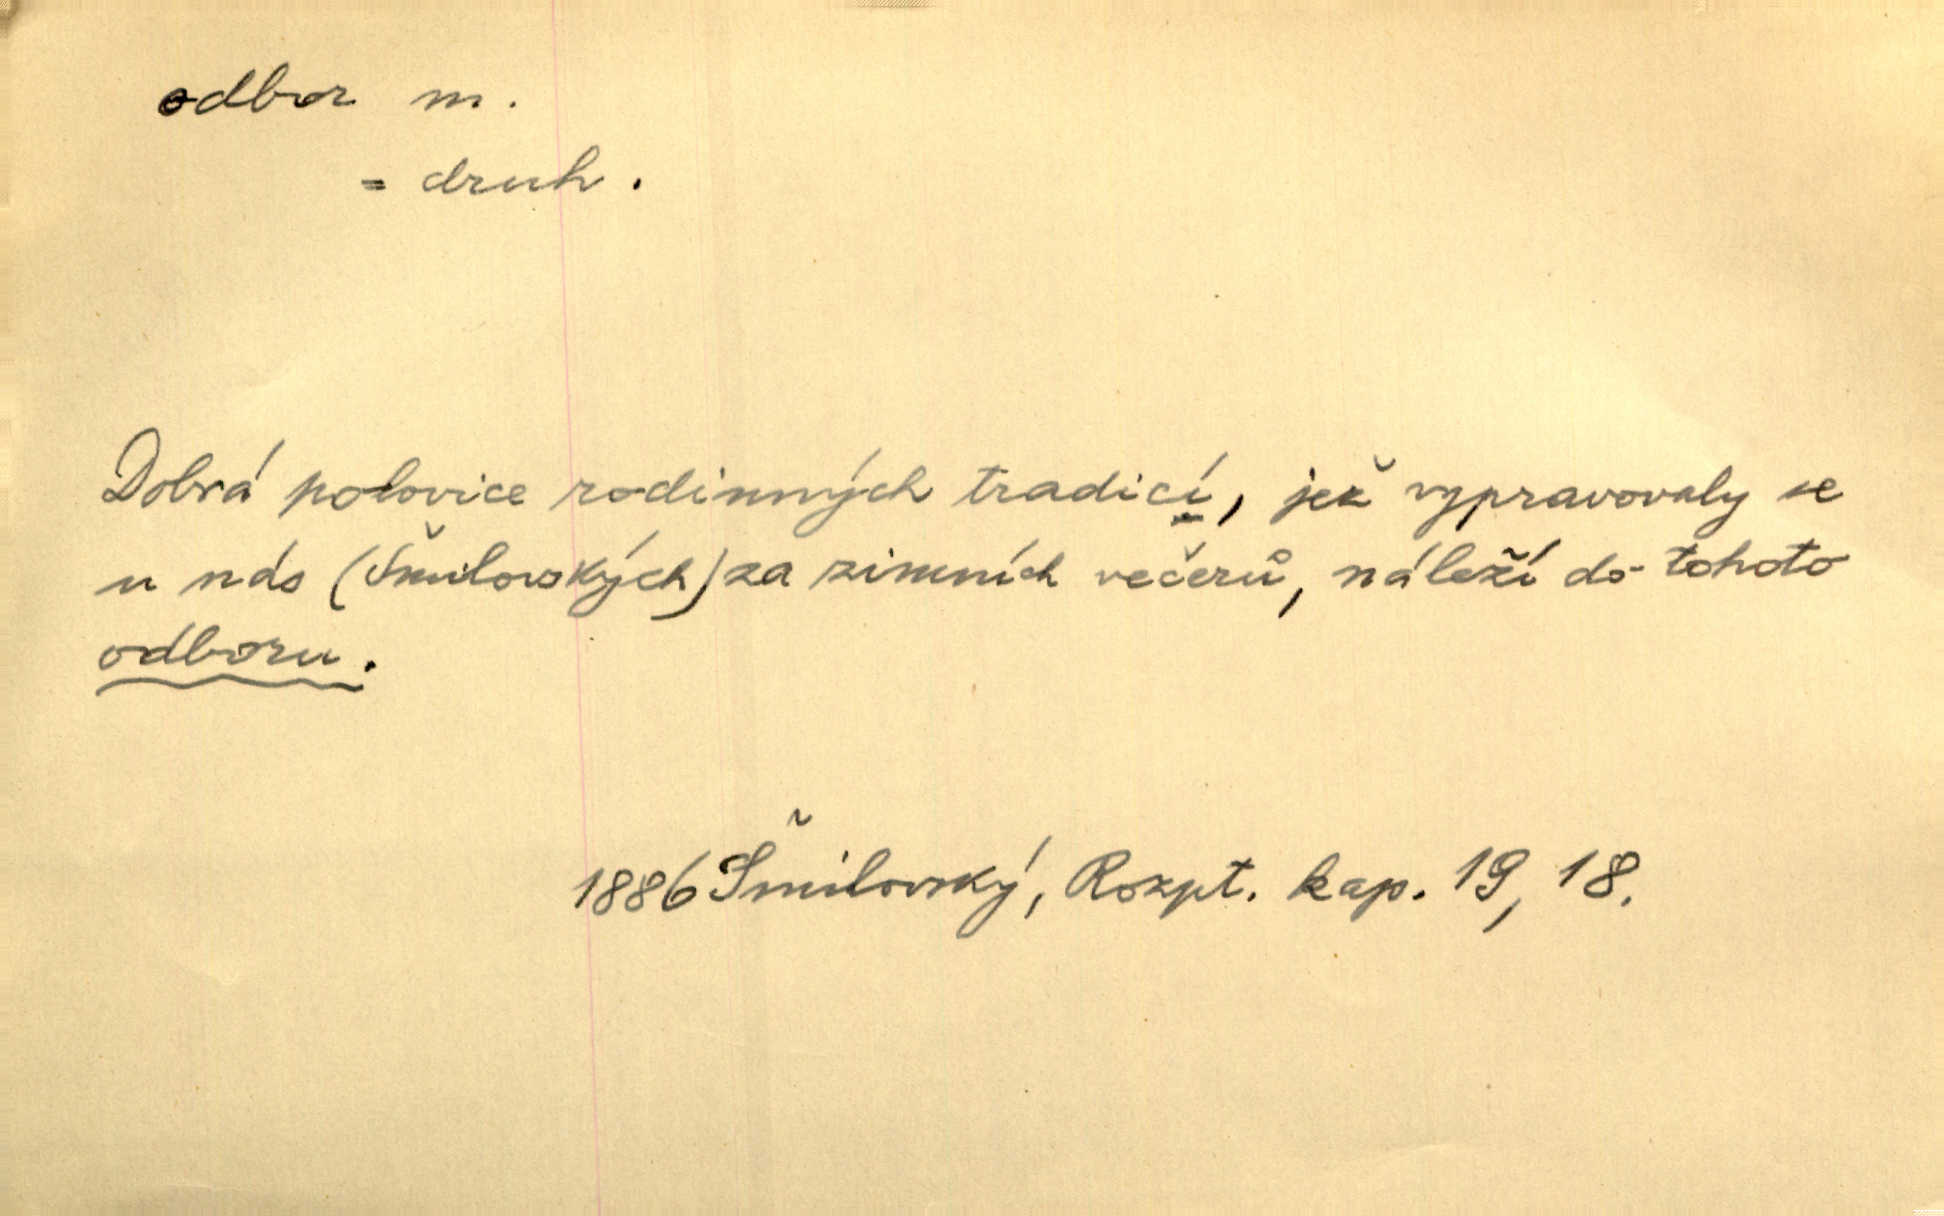 odbor m.
= druh.
Dobrá polovice rodinných tradicí, jež vypravovaly se
u nás (Šmilovských) za zimních večerů, náleží do tohoto
odboru.
1886 Šmilovský, Rozpt. kap. 19, 18.